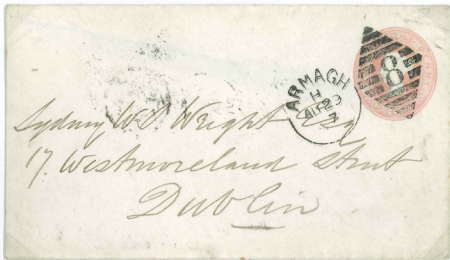 ARMAGH
H
AU 29
7
8
Sydney W Wright Esq
17. Westmoreland Street
Dublin